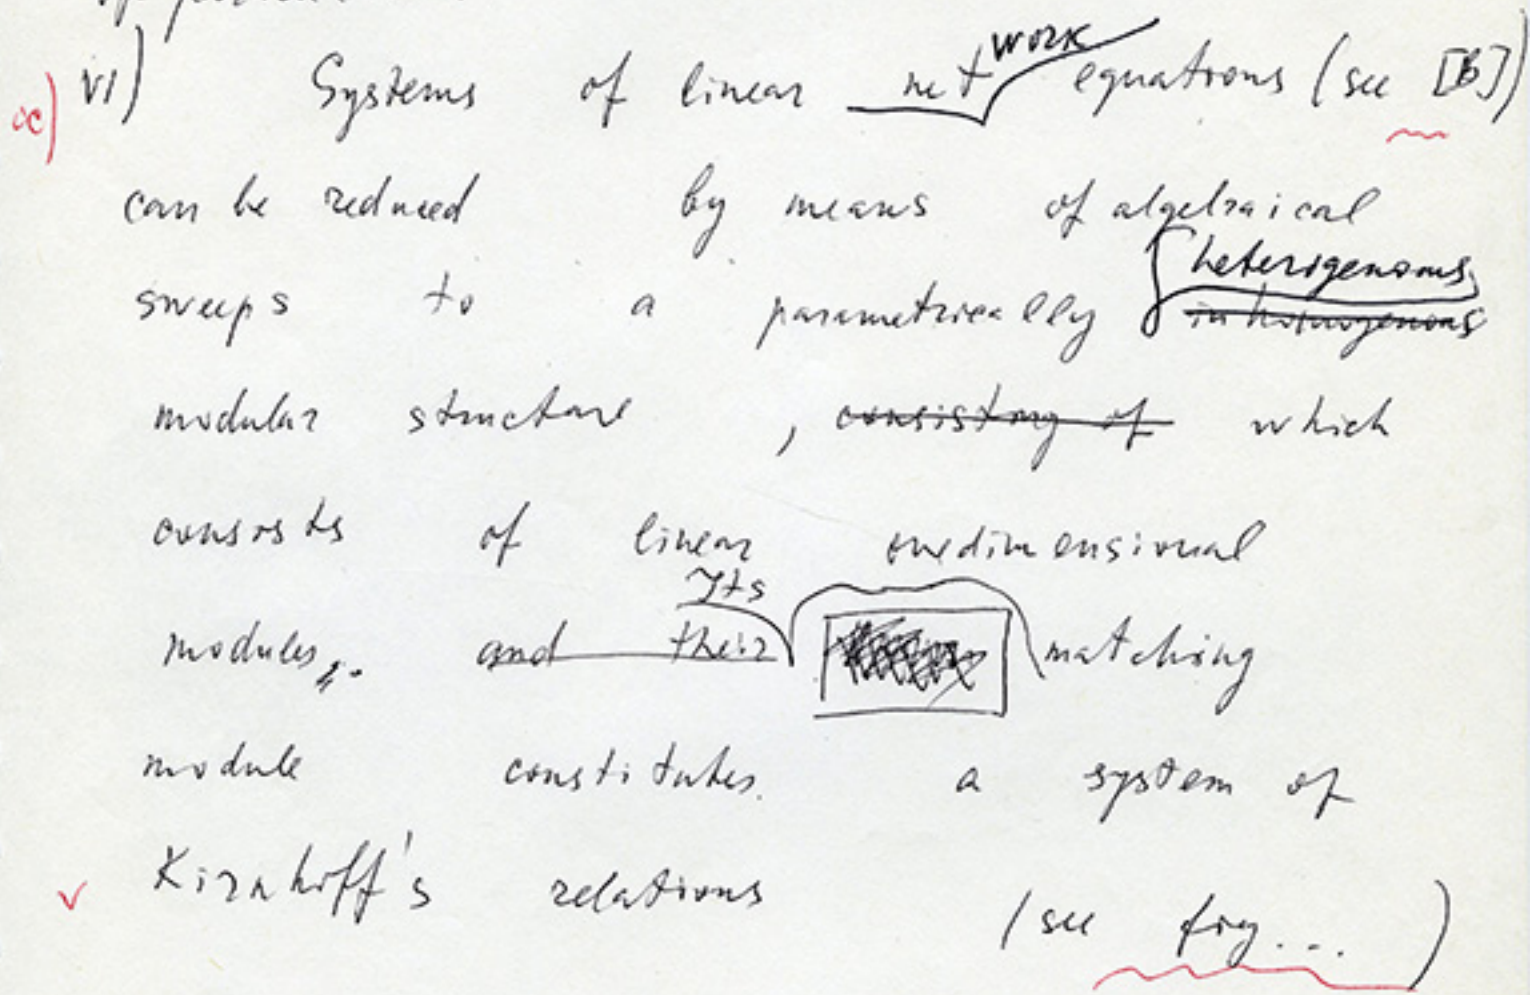 ∝) vi) Systems of linear network equations (see [B])
can be reduced by means of algebraical
sweeps to a parametrically heterogenous inhomogenous
modular structure , consisting of which
consists of linear onedimensional
modules,. and their Its matching
module constitutes. a system of
v Kirchhoff's relations (see fig...)